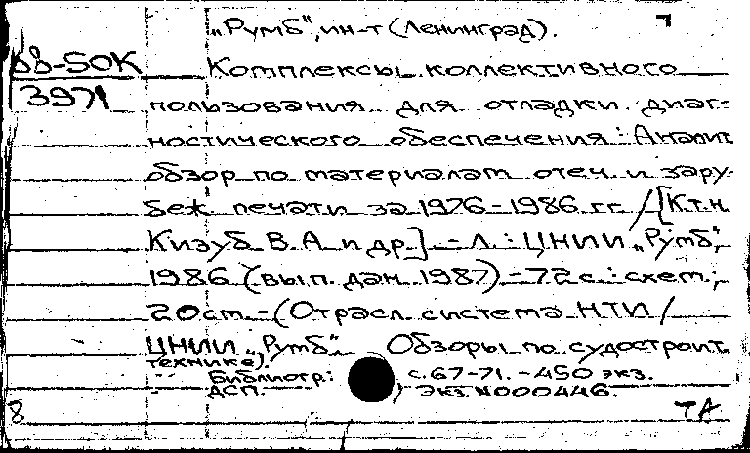 „Румб", ин-т (Ленинград). 7
88-5ОК Комплексы коллективного
3971 пользования для отладки диаг-
ностического обеспечения : Аналит.
обзор по материалам отеч. и зару-
беж. печати за 1976-1986 гг. / [К.т.н.
Кизуб В.А. и др.] .- Л. : ЦНИИ „Румб",
1986 (вып. дан. 1987) .- 72 с. : схем. ;
20 см. - (Отрасл. система НТИ /
ЦНИИ „Румб". Обзоры по судостроит.
технике).
Библиогр.: с. 67-71. - 450 экз.
ДСП. Экз. N000446.
8 ТА